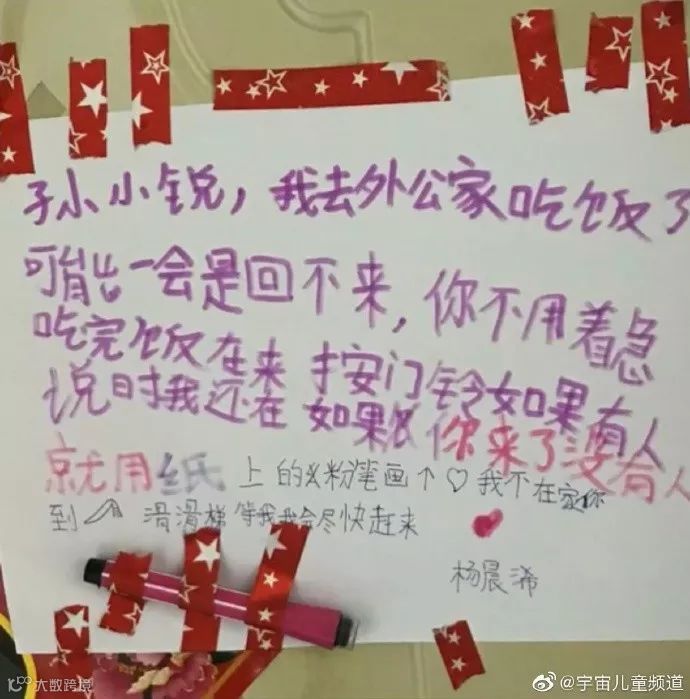 孙小锐，我去外公家吃饭了
可能一会是回不来，你不用着急
吃完饭在来 按门铃如果有人
说时我还在 如果 你来了没有人
就用纸上的 粉笔画个♡我不在 你
到 滑滑梯等我我会尽快赶来
杨晨浠
大数跨境
@宇宙儿童频道